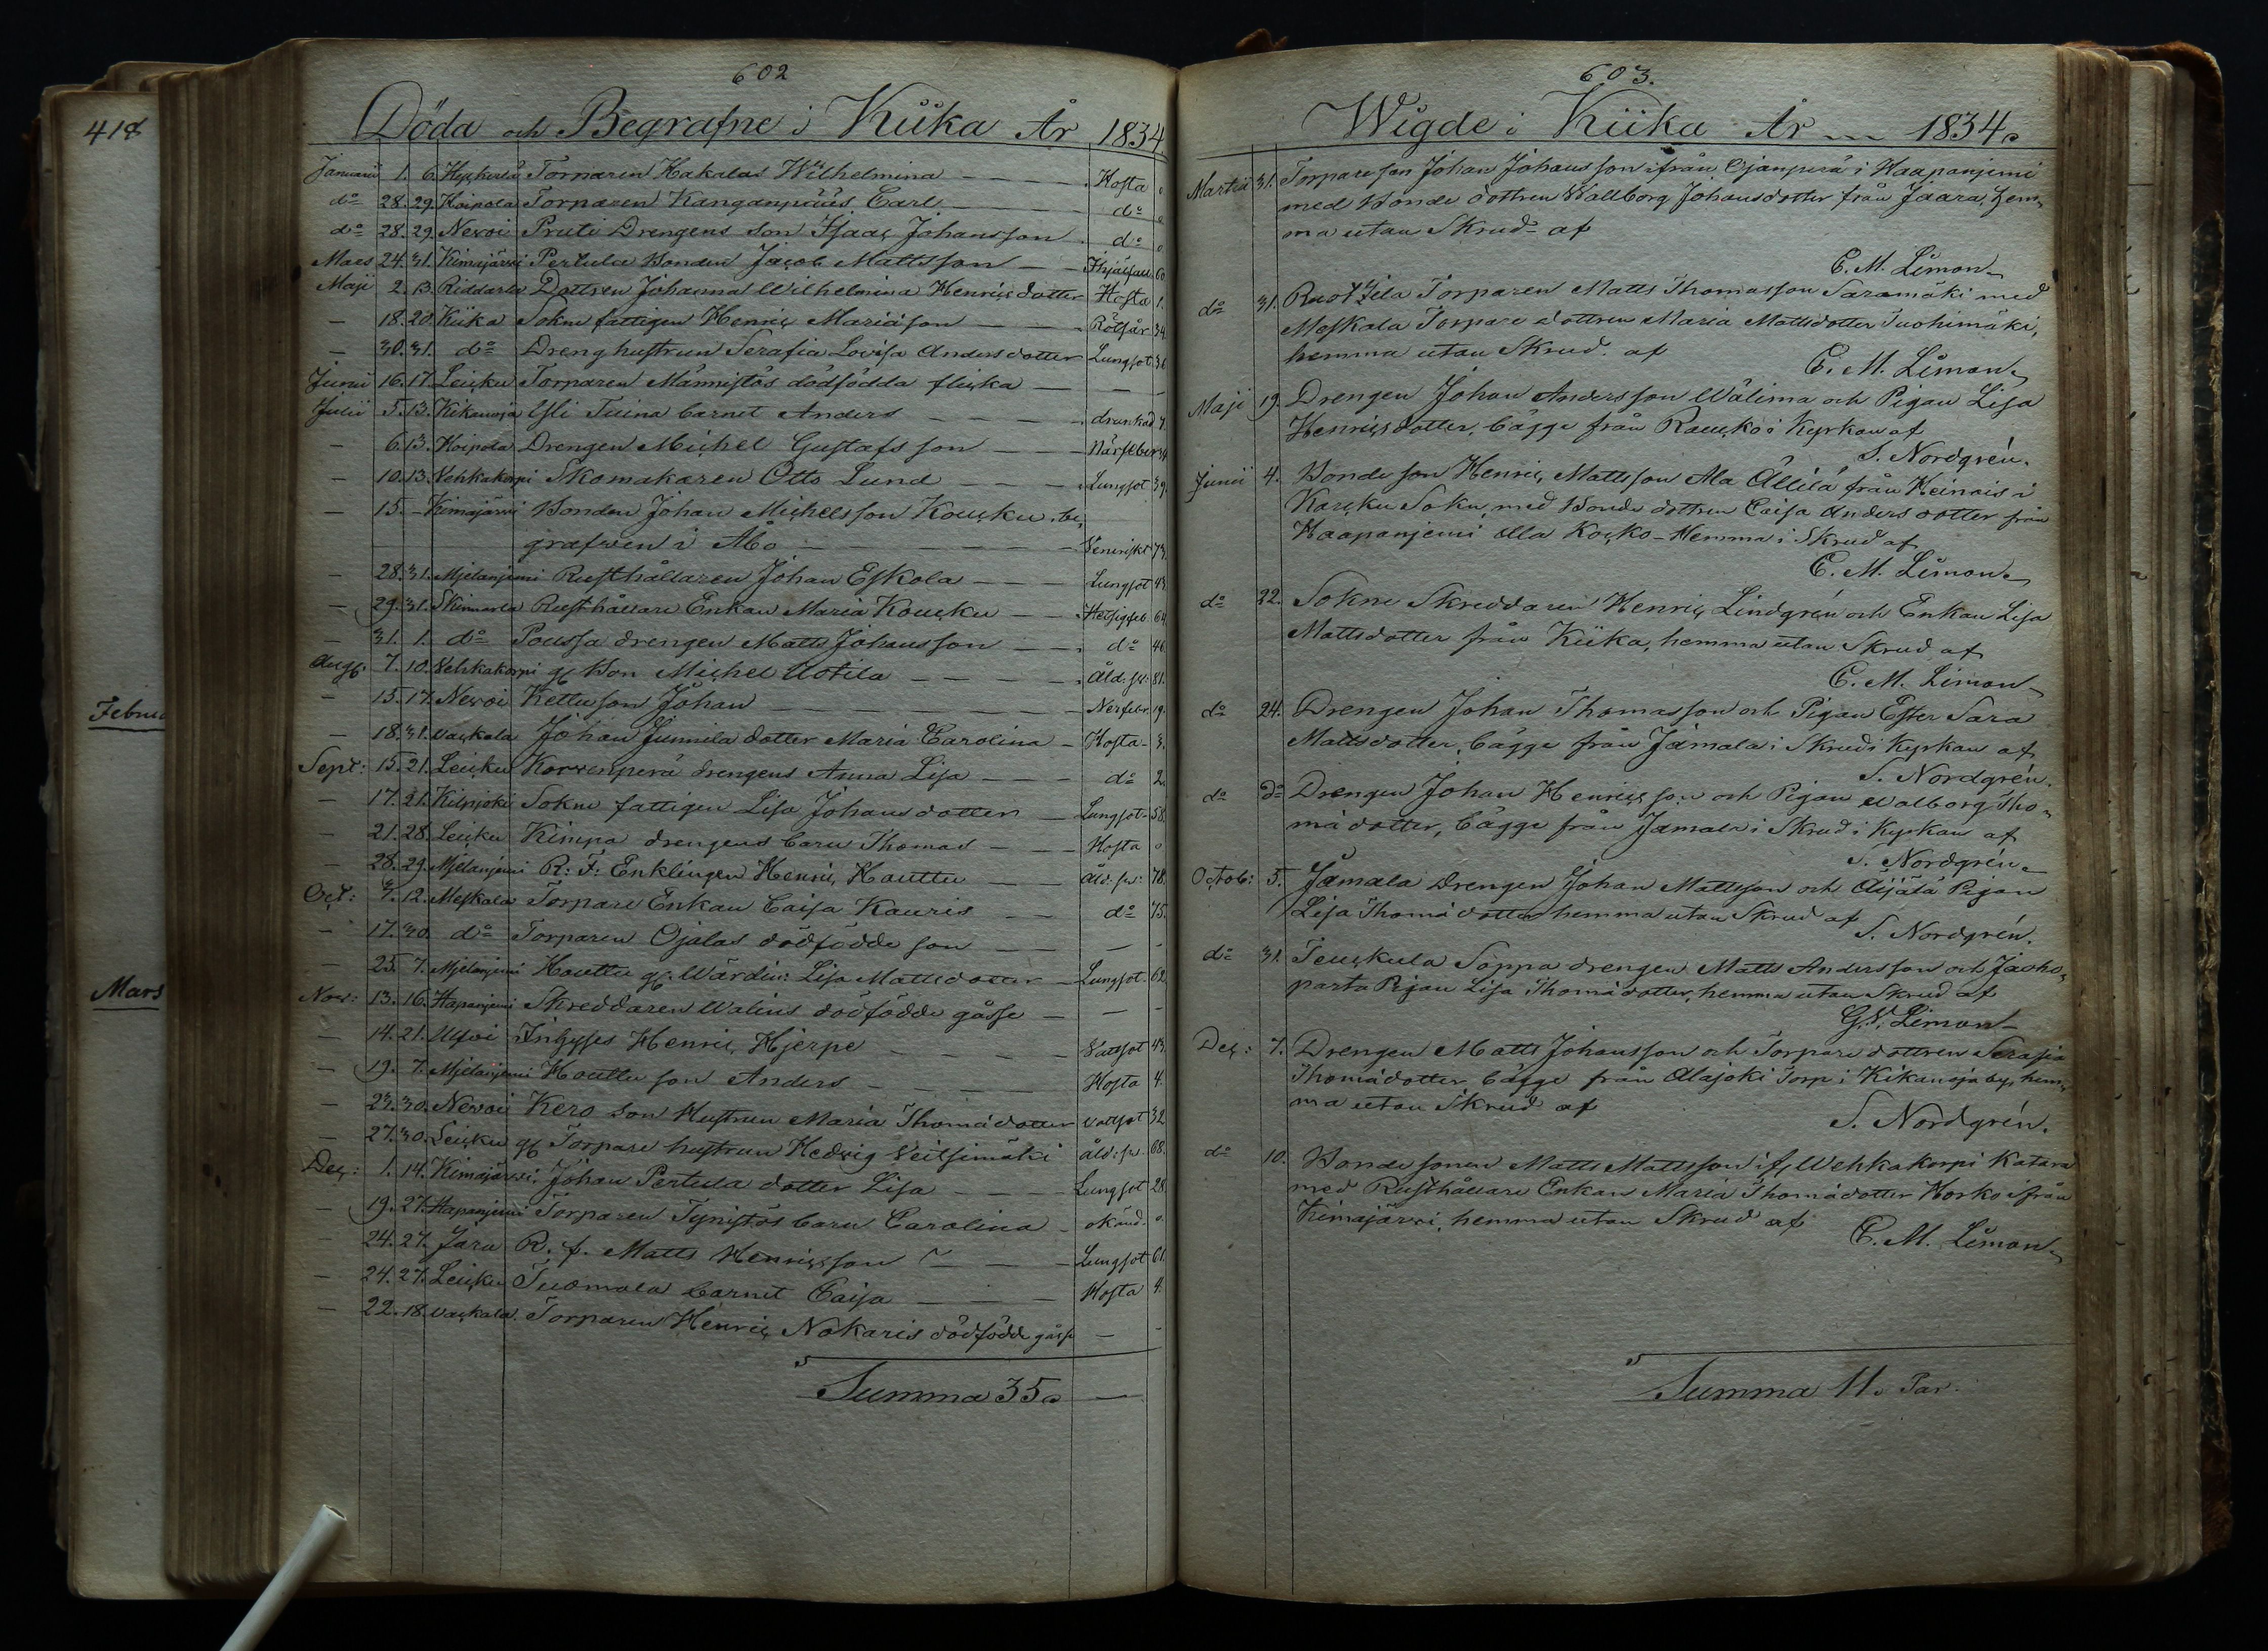 418
Februa
Mars
602
Döda och Begrafne i Kiika År 1834.
Januarii 1. 6. Hyrkerlä Torparen Kakalas Wilhelmina — Hosta 0
do 28. 29. Koipola Torparen Kanganpääs Carl — do 0
do 28. 29. Nevoi Pruti Drengens son Isaac Johansson do 0
Mars 24. 31. Kimajärvi Pertula Bonden Jacob Mattsson — 60
Maji 2. 13. Riddarla Dottren Johanna Wilhelmina Henricsdotter Hosta 1.
— 18. 20 Kiika Sokne fattigen Henric Mariäson — Rötsår 34.
— 30. 31. do Dreng hustrun Serafia Lovisa Andersdotter Lungsot 36
Junii 16. 17. Leicku Torparen Männistös dödfödda flicka — —
Julii 5. 13. Kikanoja Yli Tuina barnet Anders — drunknad 7.
— 6. 13. Koipola Drengen Michel Gustafsson — Närfeber
— 10. 13. Vehkakorpi Skomakaren Otto Lund — Lungsot 39.
— 15. — Kimajärvi Bonden Johan Michelsson Koucku, be,
grafven i Åbo — Venerisk 73.
— 28. 31. Mjelanjemi Rusthållaren Johan Eskola — Lungsot 43.
— 29. 31. Skinnarla Rusthållare Enkan Maria Koucku — Hetsigfeb. 64
— 31. 1. do Poussa drengen Matts Johansson — do 46.
Aug: 7. 10. Vehkakorpi gl Bon Michel Uotila — Åld: sv: 81.
— 15. 17. Nevoi Kettu son Johan — Nerfebr. 19.
— 18. 31. Vackala Johan Junnila dotter Maria Carolina — Hosta — 3.
Sept: 15. 21. Leicku Korvenperä drengens Anna Lisa — do 2.
— 17. 21. Kilpjoki Sokne fattigen Lisa Johansdotter — Lungsot — 58.
— 21. 28. Leicku Kimpa drengens barn Thomas — Hosta 0
— 28. 29. Mjelanjemi R: F: Enklingen Henric Houttu — Åld: sv: 78.
Oct: 7. 12. Meskala Torpare Enkan Caisa Kauris — do 75.
— 17. 20. do Torparen Ojalas dödfödde son — — -
— 25. 7. Mjelanjemi Houttu gl. Wärdin: Lisa Mattsdotter — Lungsot. 62.
Nov: 13. 16. Hapanjemi Skreddaren Walins dödfödde gåsse — — -
— 14. 21. Utfoi Inhyses Henric Hjerpe — Vattsot 43.
— 19. 7. Mjelanjemi Houttu son Anders — Hosta 4.
— 23. 30. Nevoi Kero Son Hustrun Maria Thomädotter Vattsot 32
— 27. 30. Leicku gl Torpare hustrun Hedvig Veitsimäki åld: sv. 68.
Dec: 1. 14. Kimajärvi Johan Pertula dotter Lisa — Lungsot 28.
— 19. 27. Hapanjemi Torparen Tynistös barn Carolina — okänd. 0.
— 24. 27. Jära R. f. Matts Henricsson — Lungsot 61.
— 24. 27. Leicku Tuomola barnet Caisa — Hosta 4.
— 22. 18. Vackala Torparen Henric Nokaris dödfödde gåsse — -
Summa 35. —
603.
Wigde i Kiika År — 1834.
Martii 31. Torpareson Johan Johansson ifrån Ojanperä i Haapanjemi
med Bonde dottren Wallborg Johansdotter från Jaara, hem,
ma utan Skrud af
C. M. Limon
do 31. Ruotzila Torparen Matts Thomasson Saramäki med
Meskala Torpare dottren Maria Mattsdotter Tuohimäki,
hemma utan Skrud. af
C. M. Limon
Maji 19 Drengen Johan Andersson Wälima och Pigan Lisa
Henricsdotter, bägge från Raucko i Kyrkan af
S. Nordgrén.
Junii 4. Bonde son Henric Mattsson Ala Ällilä från Heinois i
Karcku Sokn, med Bonde dottren Caisa Andersdotter från
Haapanjemi Alla Kocko - Hemma i Skrud af
C. M. Limon
do 22. Sokne Skreddaren Henric Lindgrén och Enkan Lisa
Mattsdotter från Kiika, hemma utan Skrud af
C. M. Limon
do 24. Drengen Johan Thomasson och Pigan Ester Sara
Mattsdotter, bägge från Jamala i Skrud i Kyrkan af
S. Nordgrén.
do do Drengen Johan Henricsson och Pigan Walborg Tho,
mädotter, bägge från Jamala i Skrud i Kyrkan af
S. Nordgrén.
Octob: 5. Jamala drengen Johan Mattsson och Äijälä Pigan
Lisa Thomädotter hemma utan Skrud af
S. Nordgrén.
do 31. Teuckula Soppa drengen Matts Andersson och Jaaho,
parta Pigan Lisa Thomädotter, hemma utan Skrud af
G. N. Limon
Dec: 7. Drengen Matts Johansson och Torpare dottren Serafia
Thomädotter, bägge från Alajoki Torp i Kikanoja by, hem,
ma utan Skrud af
S. Nordgrén.
do 10. Bonde sonen Matts Mattsson if. Wehkakorpi Katara
med Rusthållare Enkan Maria Thomädotter Horko ifrån
Kimajärvi, hemma utan Skrud af
C. M. Limon
Summa 11. Par.